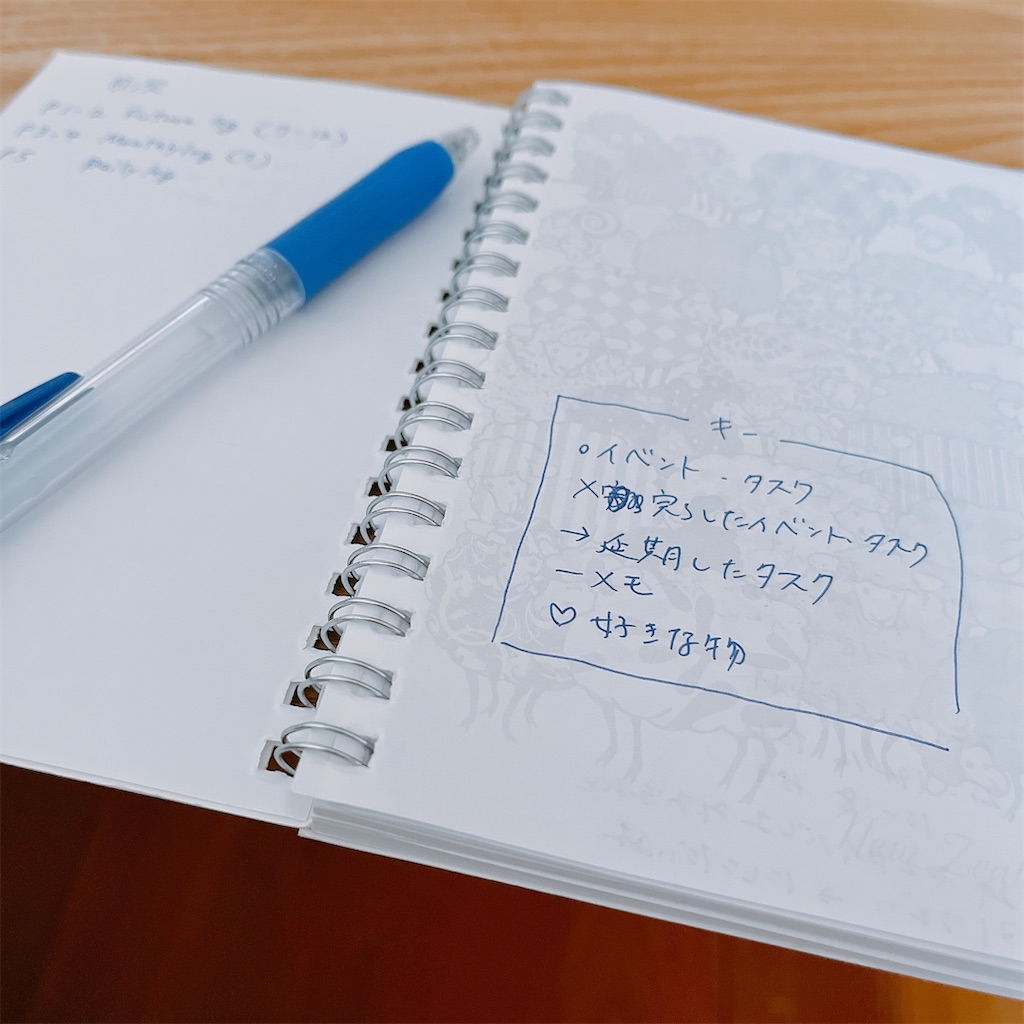 目次
P1-2 Future log (7-12)
P3-4 Monthly log (7)
P5 Daily log
キー
○イベント・タスク
×完了したイベント、タスク
→延期したタスク
ーメモ
♡好きな物